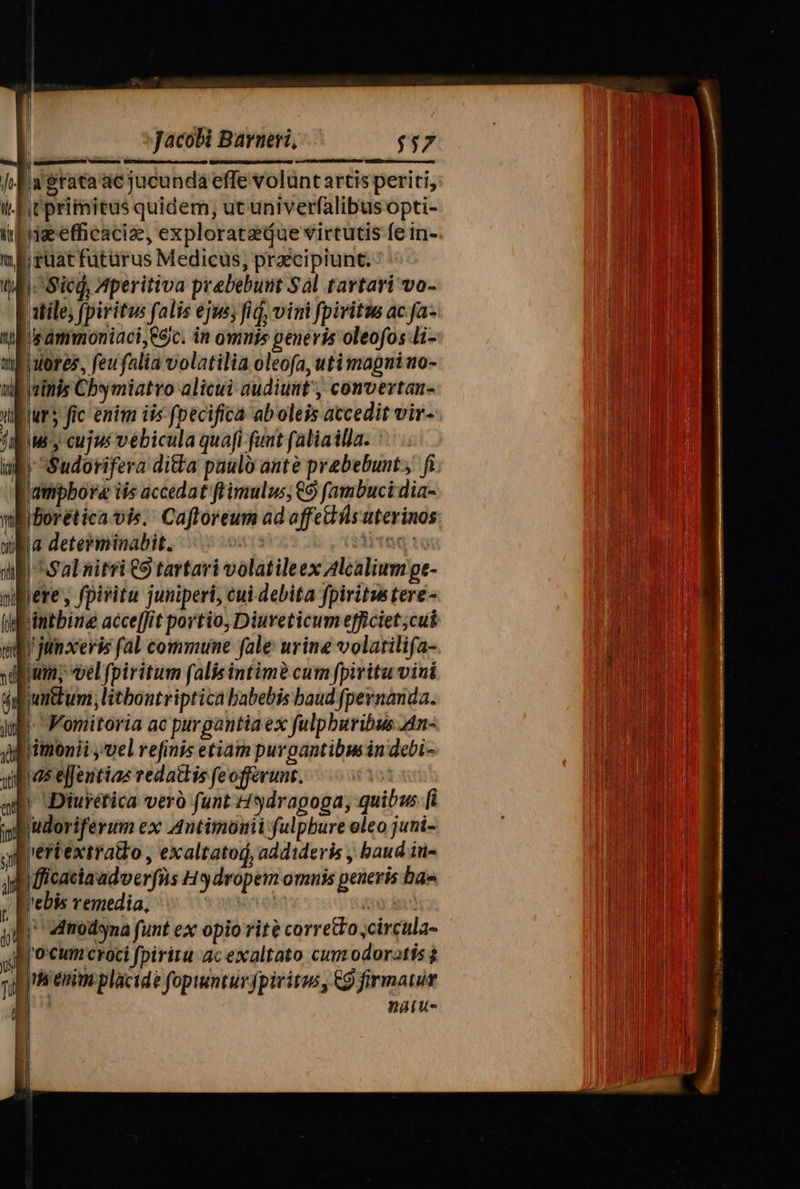 Jacobi Barneri, 557
grata ac jucunda esse volunt artis periti,
primitus quidem, ut universalibus opti-
efficaciæ, exploratæque virtutis se in-
futurus Medicus, præcipiunt.
Sicq; Aperitiva præbebunt Sal tartari vo-
spiritus salis ejus, siq; vini spiritus ac sa-
ammoniaci, &c. in omnis generis oleosos li-
seu salia volatilia oleosa, uti magni no-
Chymiatro alicui audiunt, convertan-
sic enim iis specifica ab oleis accedit vir-
cujus vehicula quasi sunt salia illa.
Sudorifera dicta paulò antè præbebunt, si
camphoræ iis accedat stimulus, & sambuci dia-
phoretica vis. Castoreum ad affectûs uterinos
determinabit.
Sal nitri & tartari volatile ex Alcalium ge-
nere, spiritu juniperi, cui debita spiritus tere-
binthinæ accessit portio, Diureticum efficiet, cui
junxeris sal commune sale urinæ volatilisa-
vel spiritum salis intimè cum spiritu vini
lithontriptica habebis haud spernanda.
Vomitoria ac purgantia ex sulphuribus An-
timonii, vel resinis etiam purgantibus in debi-
tas essentias redactis se offerunt.
Diuretica verò sunt Hydragoga, quibus si
sudoriferum ex Antimonii sulphure oleo juni-
peri extracto, exaltatoq; addideris, haud in-
efficacia adversùs Hydropem omnis generis ha-
bebis remedia.
Anodyna sunt ex opio ritè correcto, circula-
cum croci spiritu ac exaltato cum odoratis;
enim placidè sopiuntur spiritus, & firmatur
natu-